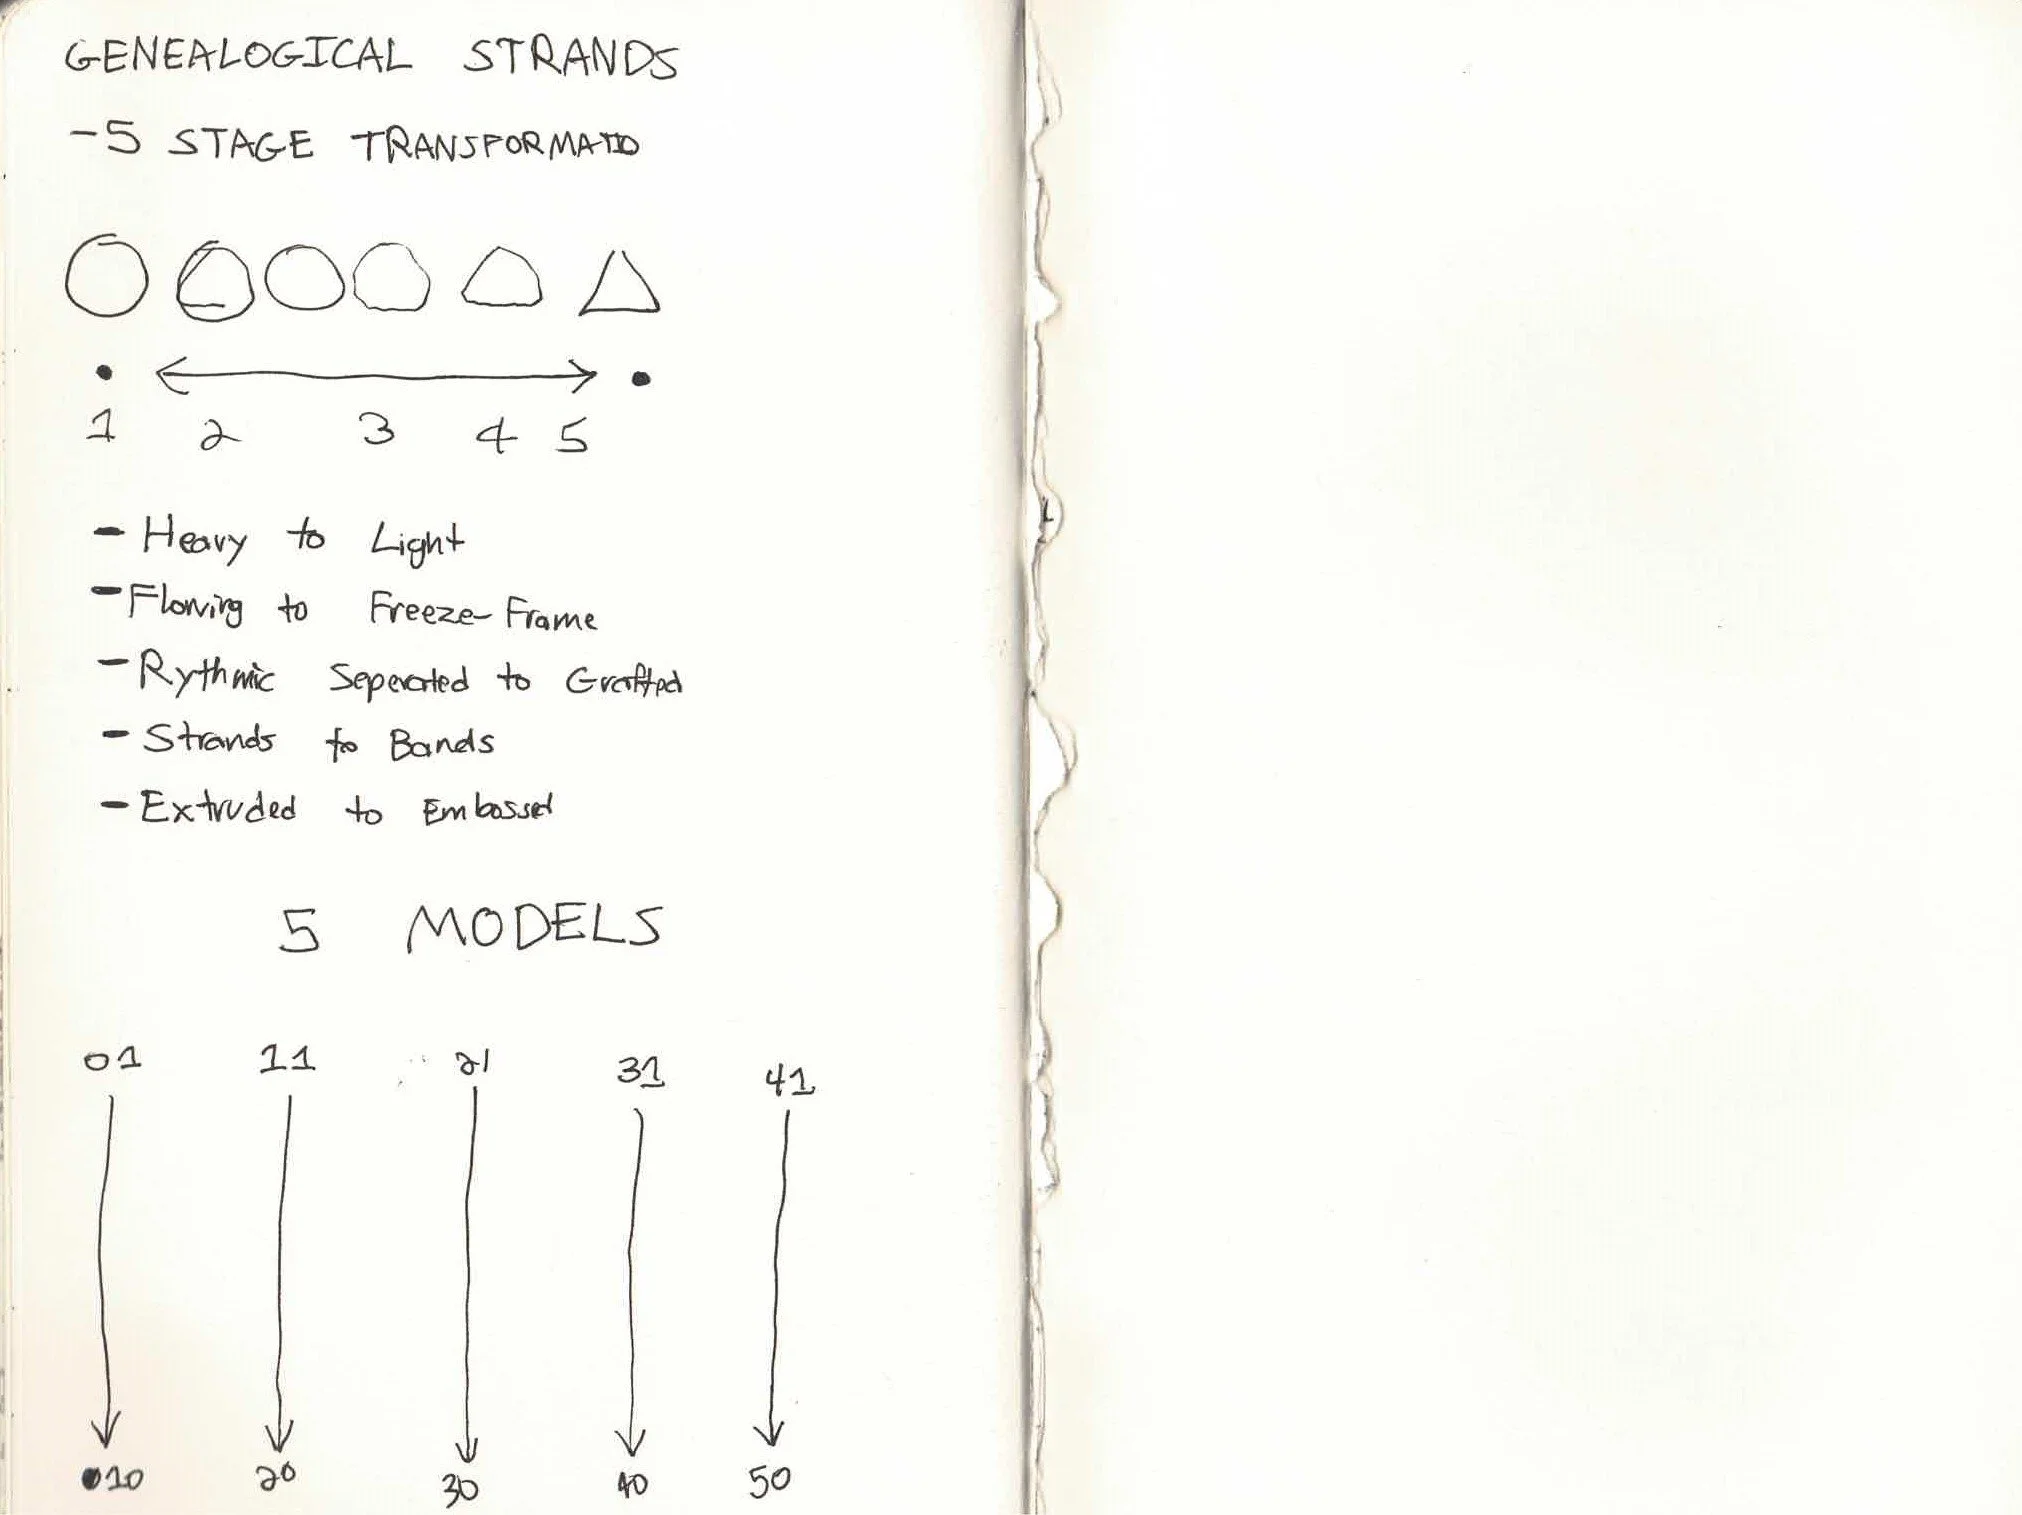 GENEALOGICAL STRANDS
-5 STAGE TRANSFORMATIO
1 2 3 4 5
- Heavy to Light
- Flowing to Freeze-Frame
- Rythmic Seperated to Grafted
- Strands to Bands
- Extruded to Embossed
5 MODELS
01 11 21 31 41
10 20 30 40 50